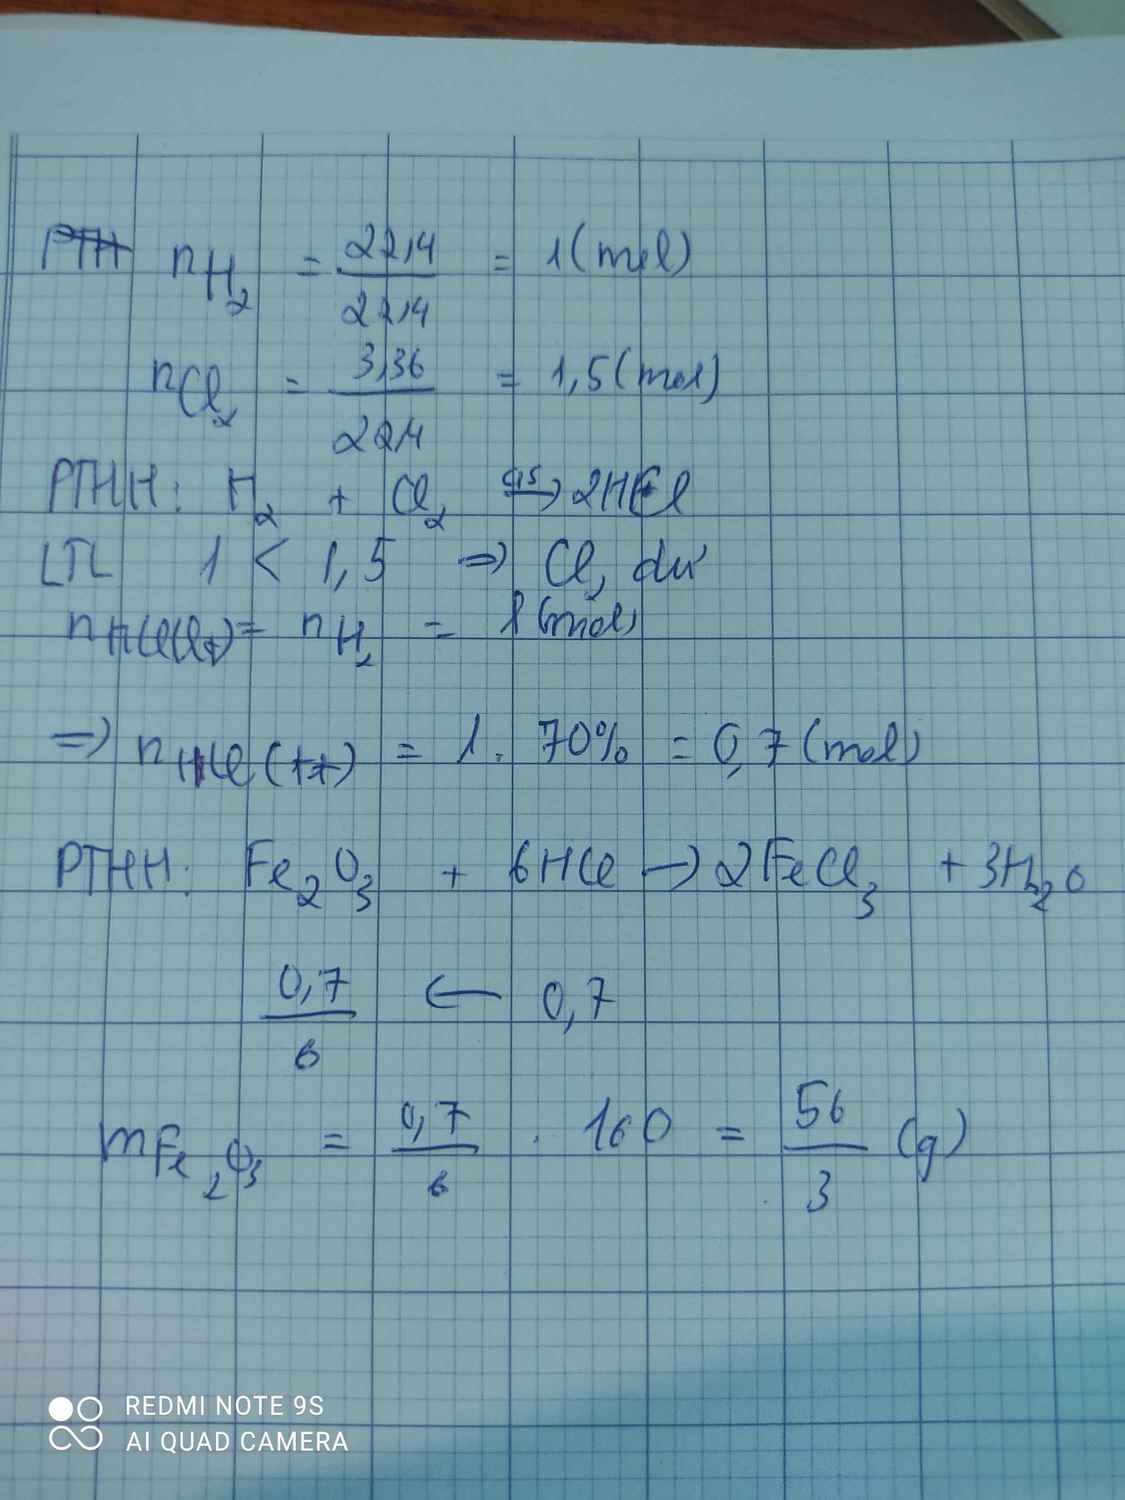 PTH nH2 = 22,4/22,4 = 1 (mol)
nCl2 = 3,36/22,4 = 1,5 (mol)
PTHH: H2 + Cl2 as→ 2HCl
LTL 1 < 1,5 => Cl2 dư
nHCl(lt) = nH2 = 1 (mol)
=> nHCl (tt) = 1. 70% = 0,7 (mol)
PTHH: Fe2O3 + 6HCl → 2FeCl3 + 3H2O
0,7/6 ← 0,7
mFe2O3 = 0,7/6 . 160 = 56/3 (g)
REDMI NOTE 9S
AI QUAD CAMERA